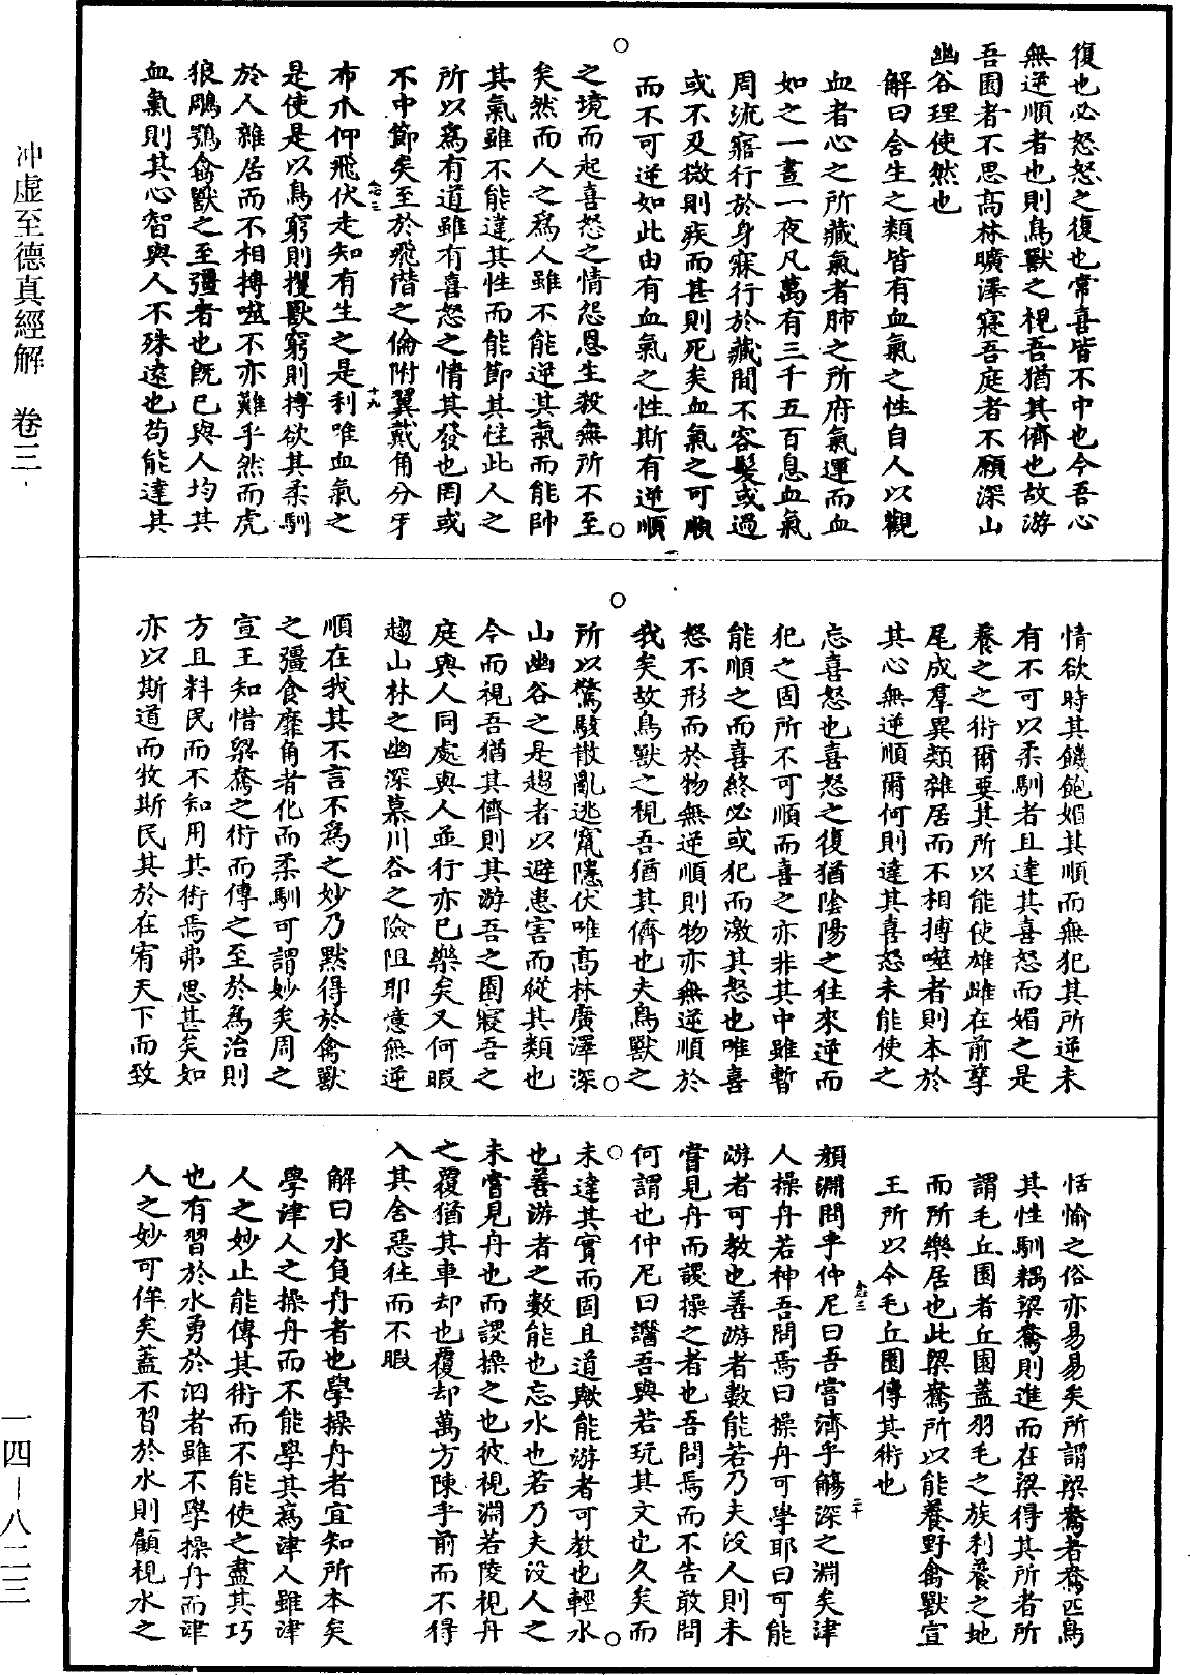 冲虛至德真經解　卷三
一四—八二三
復也必怒怒之復也常喜皆不中也今吾心
無逆順者也則鳥獸之視吾猶其儕也故游
吾園者不思高林曠澤寢吾庭者不願深山
幽谷理使然也
解曰含生之類皆有血氣之性自人以觀
血者心之所藏氣者肺之所府氣運而血
如之一晝一夜凡萬有三千五百息血氣
周流寤行於身寐行於藏間不容髮或過
或不及微則疾而甚則死矣血氣之可順
而不可逆如此由有血氣之性斯有逆順
之境而起喜怒之情怨恩生殺無所不至
矣然而人之為人雖不能逆其氣而能帥
其氣雖不能違其性而能節其性此人之
所以為有道雖有喜怒之情其發也罔或
不中節矣至於飛潛之倫附翼戴角分牙
布爪仰飛伏走知有生之是利唯血氣之
是使是以鳥窮則攫獸窮則搏欲其柔馴
於人雜居而不相搏噬不亦難乎然而虎
狼鵰鶚禽獸之至彊者也既已與人均其
血氣則其心智與人不殊遠也苟能達其
情欲時其饑飽媚其順而無犯其所逆未
有不可以柔馴者且達其喜怒而媚之是
養之之術爾要其所以能使雄雌在前孳
尾成羣異類雜居而不相搏噬者則本於
其心無逆順爾何則達其喜怒未能使之
忘喜怒也喜怒之復猶陰陽之往來逆而
犯之固所不可順而喜之亦非其中雖暫
能順之而喜終必或犯而激其怒也唯喜
怒不形而於物無逆順則物亦無逆順於
我矣故鳥獸之視吾猶其儕也夫鳥獸之
所以驚駭散亂逃竄隱伏唯高林廣澤深
山幽谷之是趨者以避患害而從其類也
今而視吾猶其儕則其游吾之園寢吾之
庭與人同處與人並行亦已樂矣又何暇
趨山林之幽深慕川谷之險阻耶噫無逆
順在我其不言不為之妙乃默得於禽獸
之彊食靡角者化而柔馴可謂妙矣周之
宣王知惜梁鴦之術而傳之至於為治則
方且料民而不知用其術焉弗思甚矣如
亦以斯道而牧斯民其於在宥天下而致
恬愉之俗亦易易矣所謂梁鴦者鴦匹鳥
其性馴耦梁鴦則進而在梁得其所者所
謂毛丘園者丘園蓋羽毛之族利養之地
而所樂居也此梁鴦所以能養野禽獸宣
王所以令毛丘園傳其術也
顏淵問乎仲尼曰吾嘗濟乎觴深之淵矣津
人操舟若神吾問焉曰操舟可學耶曰可能
游者可教也善游者數能若乃夫沒人則未
嘗見舟而謖操之者也吾問焉而不告敢問
何謂也仲尼曰譆吾與若玩其文也久矣而
未達其實而固且道歟能游者可教也輕水
也善游者之數能也忘水也若乃夫沒人之
未嘗見舟也而謖操之也彼視淵若陵視舟
之覆猶其車却也覆却萬方陳乎前而不得
入其舍惡往而不暇
解曰水負舟者也學操舟者宜知所本矣
學津人之操舟而不能學其為津人雖津
人之妙止能傳其術而不能使之盡其巧
也有習於水勇於泅者雖不學操舟而津
人之妙可侔矣蓋不習於水則顧視水之